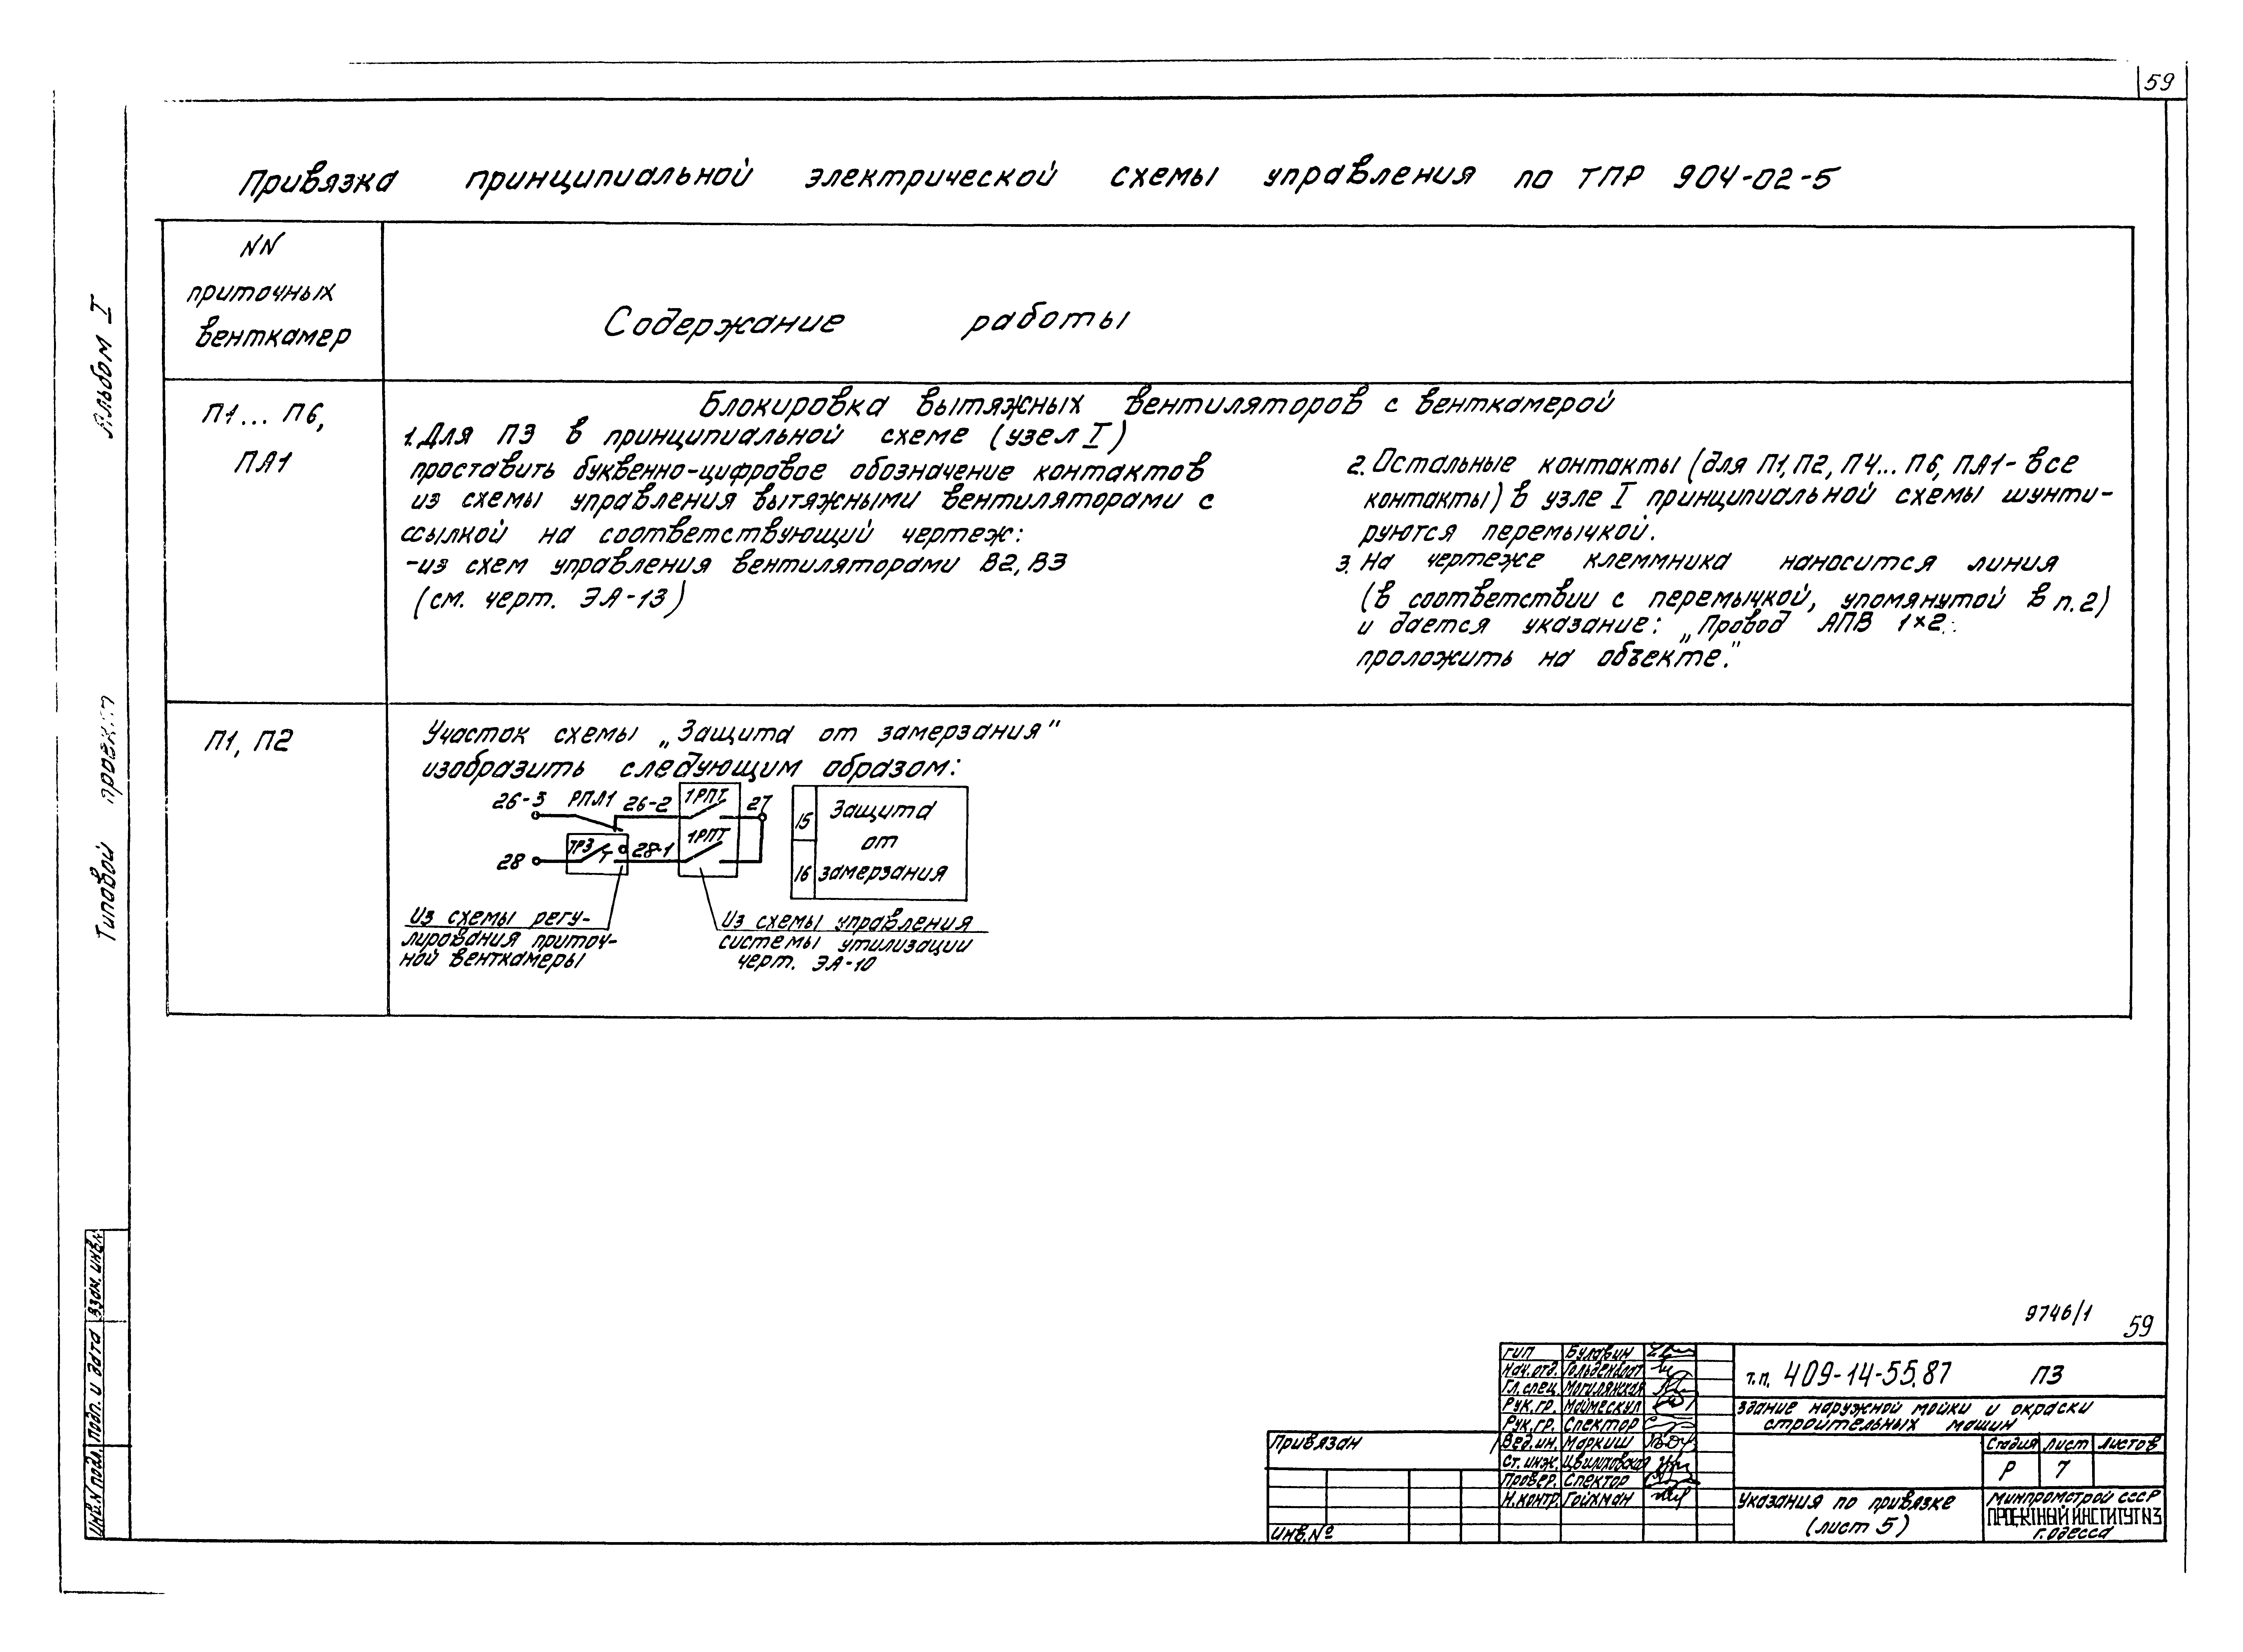 59
Привязка принципиальной электрической схемы управления по ТПР 904-02-5
NN
приточных
венткамер
Содержание работы
П1... П6,
ПА1
Блокировка вытяжных вентиляторов с венткамерой
1. Для П3 в принципиальной схеме (узел I)
проставить буквенно-цифровое обозначение контактов
из схемы управления вытяжными вентиляторами с
ссылкой на соответствующий чертеж:
-из схем управления вентиляторами В2, В3
(см. черт. ЭА-13)
2. Остальные контакты (для П1, П2, П4... П6, ПА1- все
контакты) в узле I принципиальной схемы шунти-
руются перемычкой.
3. На чертеже клеммника наносится линия
(в соответствии с перемычкой, упомянутой в п. 2)
и дается указание: „Провод АПВ 1×2
проложить на объекте."
П1, П2
Участок схемы „Защита от замерзания"
изобразить следующим образом:
26-3 РПЛ1 26-2 1РПТ 27
28 ТРЗ 28-1 1РПТ
15
16
Защита
от
замерзания
Из схемы регу-
лирования приточ-
ной венткамеры
Из схемы управления
системы утилизации
черт. ЭА-10
Альбом I
Типовой проект
Взам. инв.N
Подп. и дата
Инв.N подл.
9746/1
59
ГИП Булавин
Нач.отд. Гольденблат
Гл.спец. Могилянская
Рук.гр. Маймескул
Рук.гр. Спектор
Вед.ин. Маркиш
Ст.инж. Цвилиховская
Провер. Спектор
Н.контр. Гойхман
т.п. 409-14-55.87 ПЗ
Здание наружной мойки и окраски
строительных машин
Стадия Лист Листов
Р 7
Указания по привязке
(лист 5)
Минпромстрой СССР
ПРОЕКТНЫЙ ИНСТИТУТ N3
г. Одесса
Привязан
Инв.№